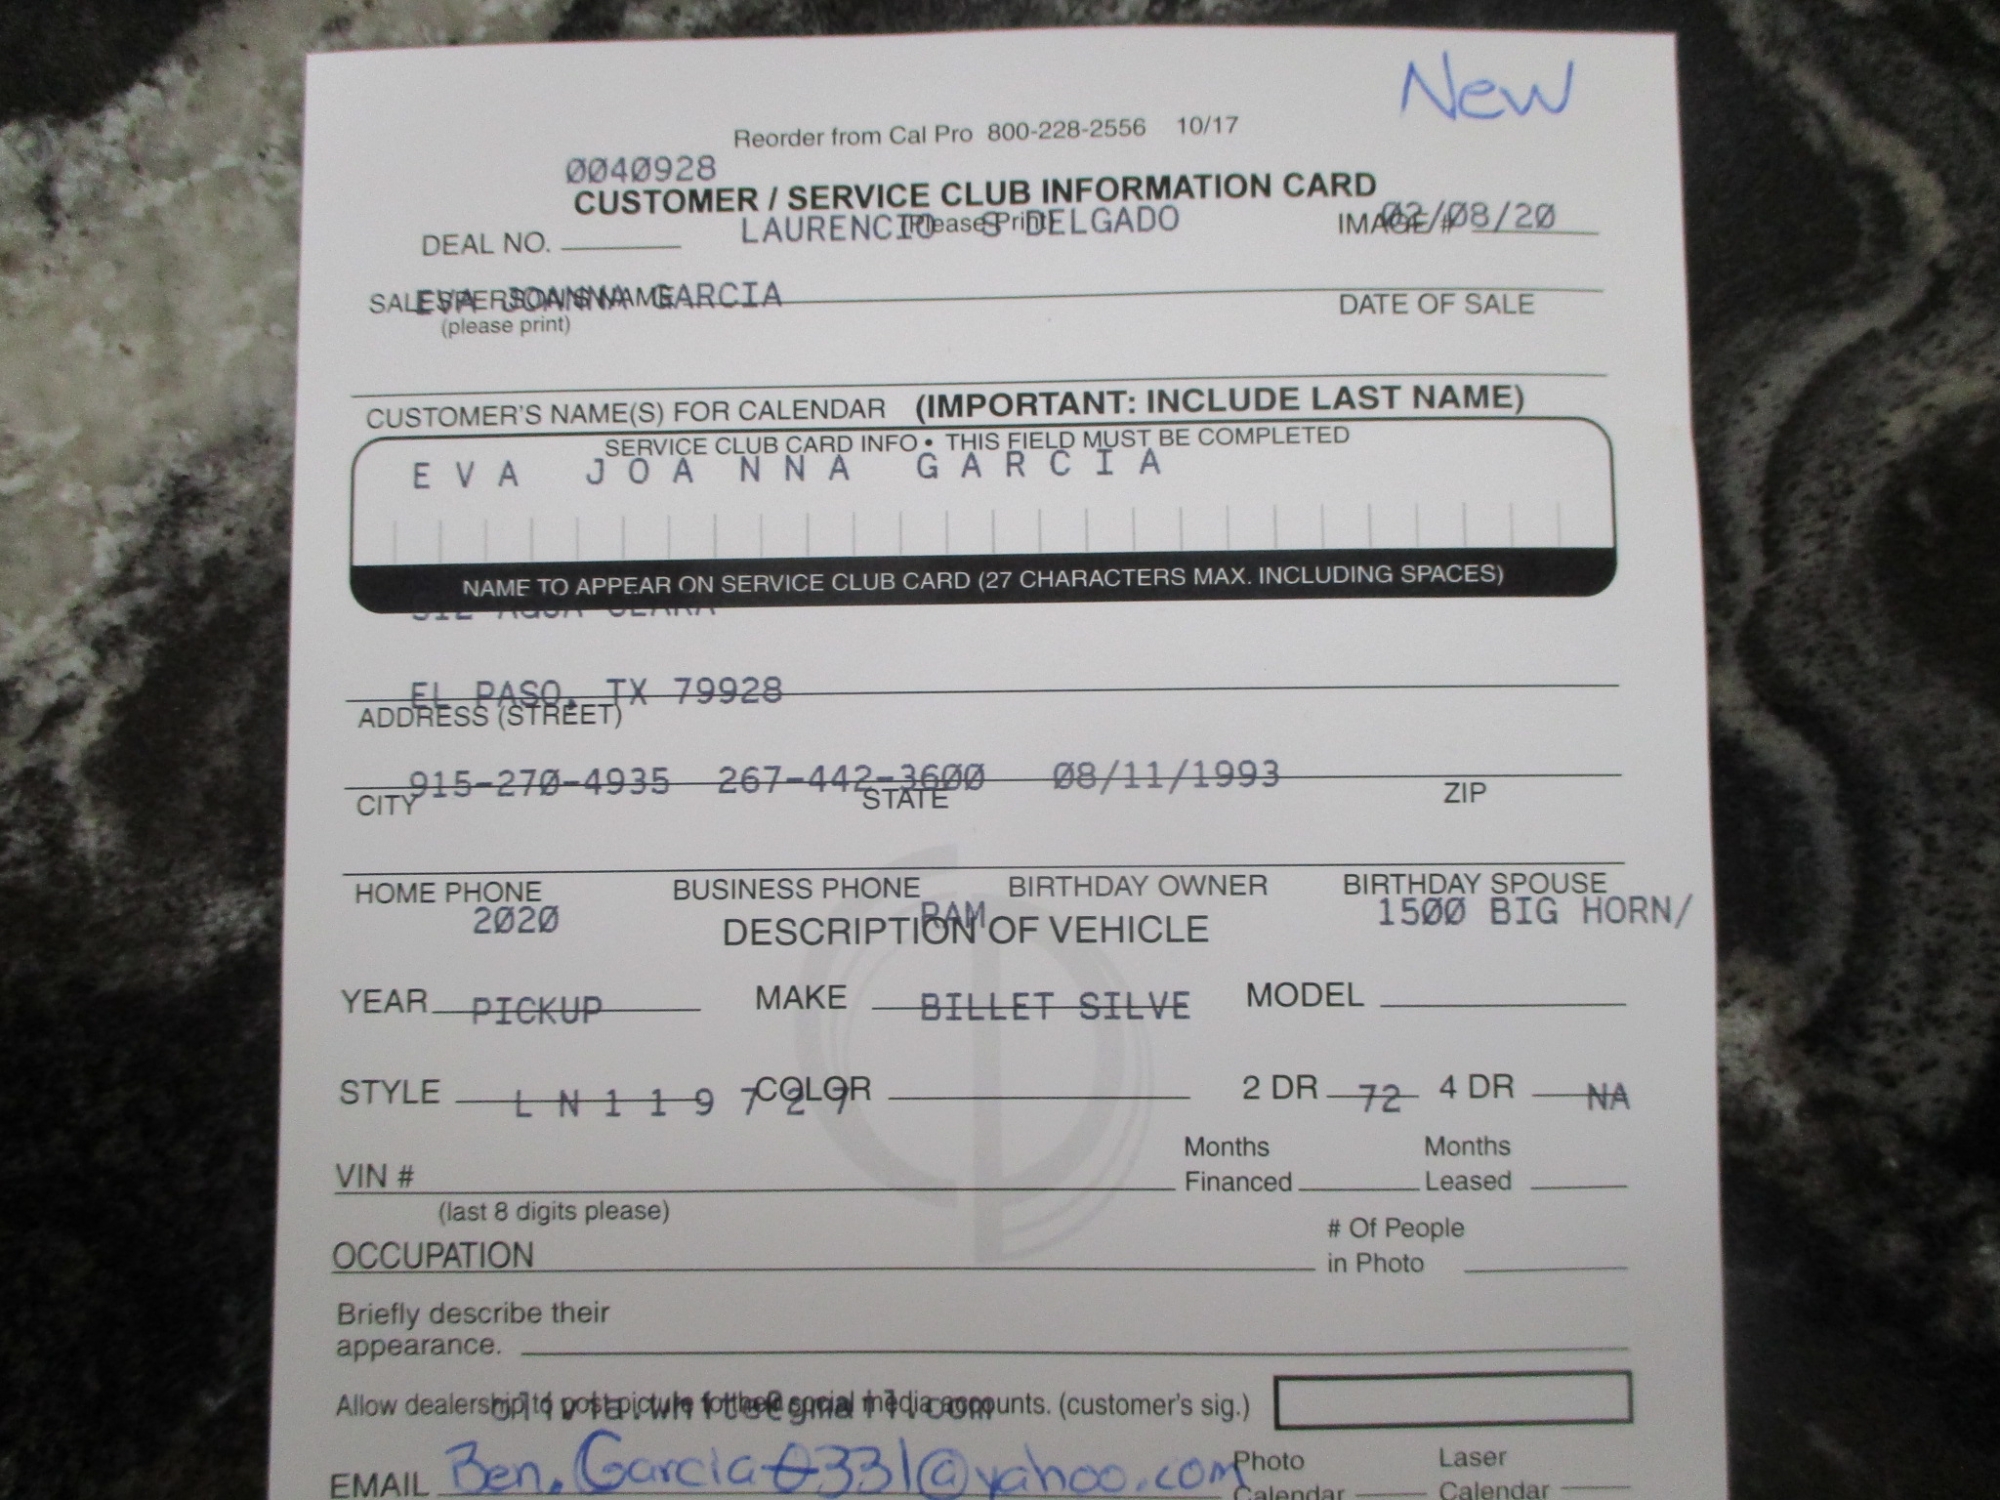 New
Reorder from Cal Pro 800-228-2556 10/17
0040928
CUSTOMER / SERVICE CLUB INFORMATION CARD
(Please Print)
LAURENCIO S DELGADO
02/08/20
DEAL NO.
IMAGE #
EVA JOANNA GARCIA
SALESPERSON'S NAME
DATE OF SALE
(please print)
CUSTOMER'S NAME(S) FOR CALENDAR (IMPORTANT: INCLUDE LAST NAME)
SERVICE CLUB CARD INFO • THIS FIELD MUST BE COMPLETED
EVA JOANNA GARCIA
NAME TO APPEAR ON SERVICE CLUB CARD (27 CHARACTERS MAX. INCLUDING SPACES)
AGUA CLARA
EL PASO, TX 79928
ADDRESS (STREET)
915-270-4935 267-442-3600 08/11/1993
CITY STATE ZIP
HOME PHONE BUSINESS PHONE BIRTHDAY OWNER BIRTHDAY SPOUSE
2020 RAM 1500 BIG HORN/
DESCRIPTION OF VEHICLE
YEAR MAKE MODEL
PICKUP BILLET SILVE
STYLE COLOR 2 DR 4 DR
LN119727 72 NA
Months Financed Months Leased
VIN #
(last 8 digits please)
# Of People in Photo
OCCUPATION
Briefly describe their
appearance.
Allow dealership to post picture for their social media accounts. (customer's sig.)
EMAIL Ben.Garcia0331@yahoo.com
Photo Calendar Laser Calendar